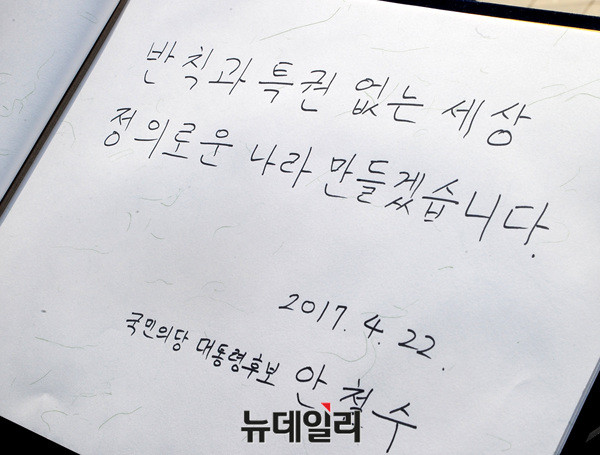 반칙과 특권 없는 세상
정의로운 나라 만들겠습니다.
2017. 4. 22.
국민의당 대통령후보 안철수
뉴데일리